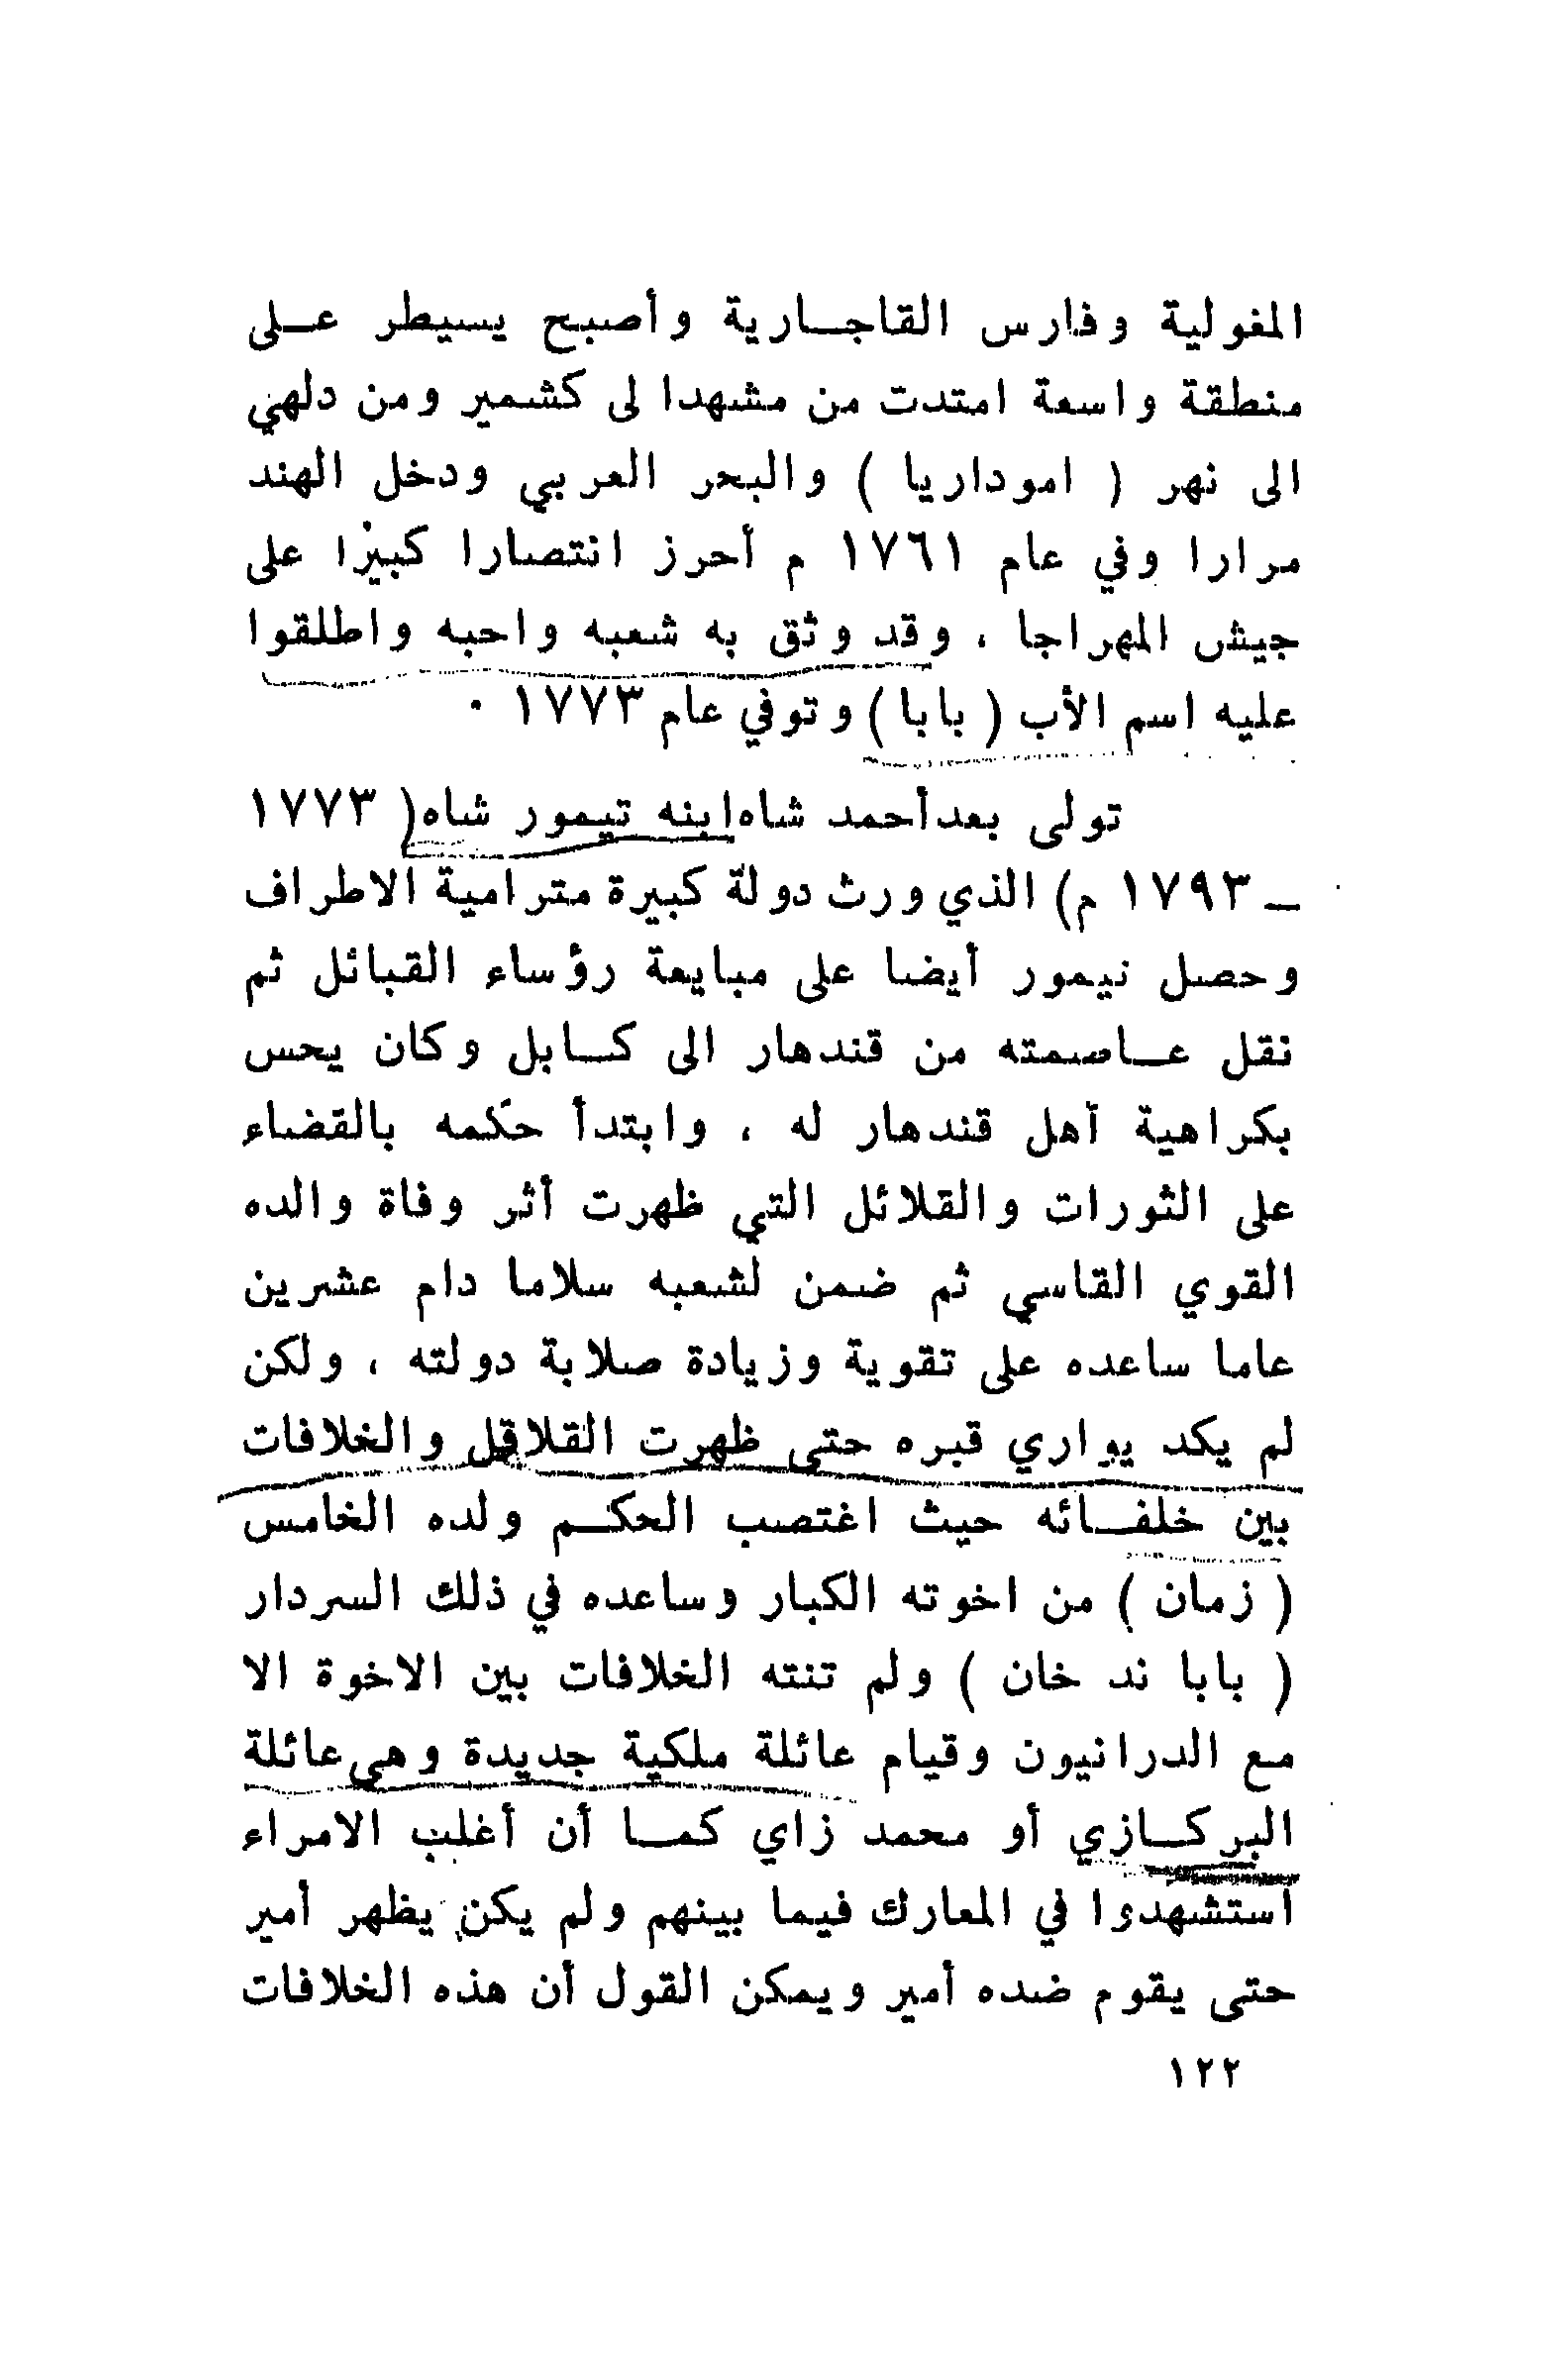 المغولية وفارس القاجـــارية وأصبح يسيطر عــلى
منطقة واسعة امتدت من مشهدا لى كشمير ومن دلهي
الى نهر ( اموداريا ) والبحر العربي ودخل الهند
مرارا وفي عام ١٧٦١ م أحرز انتصارا كبيرا على
جيش المهراجا ، وقد وثق به شعبه واحبه واطلقوا
عليه اسم الأب ( بابا ) وتوفي عام ١٧٧٣ ٠
تولى بعدأحمد شاه ابنه تيمور شاه( ١٧٧٣
ــ ١٧٩٣ م) الذي ورث دولة كبيرة مترامية الاطراف
وحصل نيمور أيضا على مبايعة رؤساء القبائل ثم
نقل عــاصمته من قندهار الى كــابل وكان يحس
بكراهية أهل قندهار له ، وابتدأ حكمه بالقضاء
على الثورات والقلائل التي ظهرت أثر وفاة والده
القوي القاسي ثم ضمن لشعبه سلاما دام عشرين
عاما ساعده على تقوية وزيادة صلابة دولته ، ولكن
لم يكد يواري قبره حتى ظهرت القلاقل والخلافات
بين خلفــائه حيث اغتصب الحكــم ولده الخامس
( زمان ) من اخوته الكبار وساعده في ذلك السردار
( بابا ند خان ) ولم تنته الخلافات بين الاخوة الا
مع الدرانيون وقيام عائلة ملكية جديدة وهي عائلة
البركــازي أو محمد زاي كمــا أن أغلب الامراء
استشهدوا في المعارك فيما بينهم ولم يكن يظهر أمير
حتى يقوم ضده أمير ويمكن القول أن هذه الخلافات
١٢٢